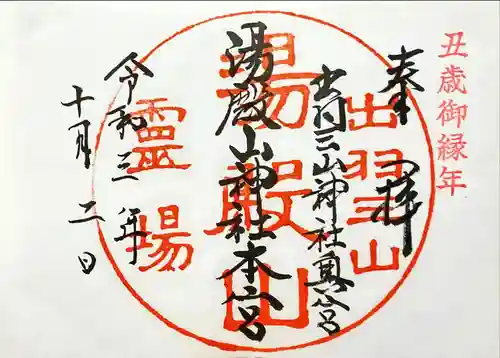 丑歳御縁年
奉拝
出羽三山神社奥宮
湯殿山神社本宮
令和三年
十月二日
出羽山
湯殿山
霊場